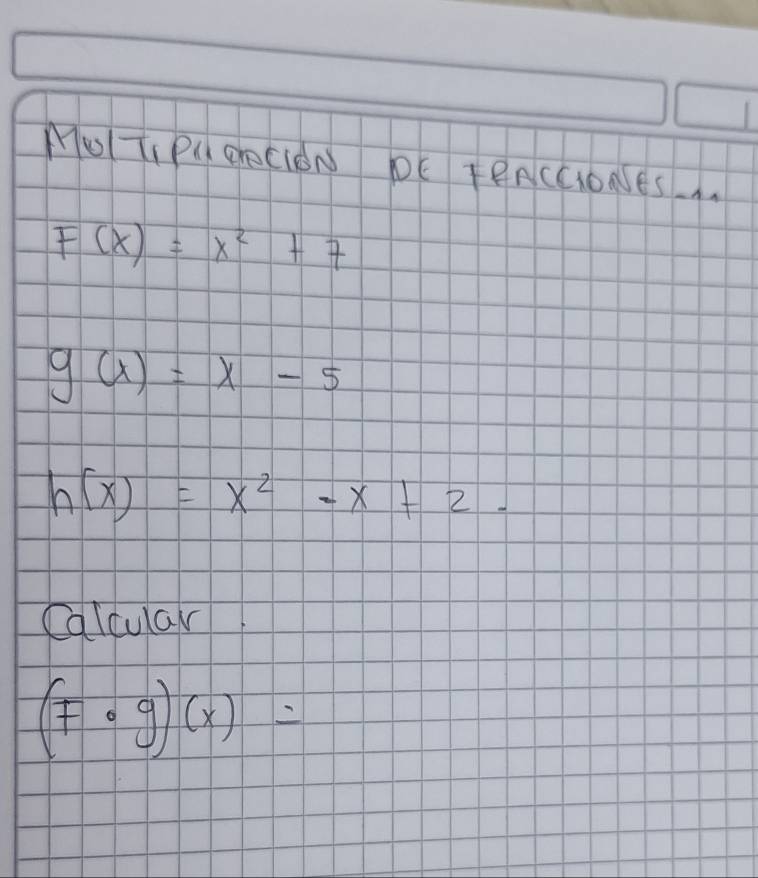 MUlTiPliCACIÓN DE FRACCIONES...
F(x) = x² + 7
g(x) = x - 5
h(x) = x² - x + 2.
Calcular.
(F • g)(x) =